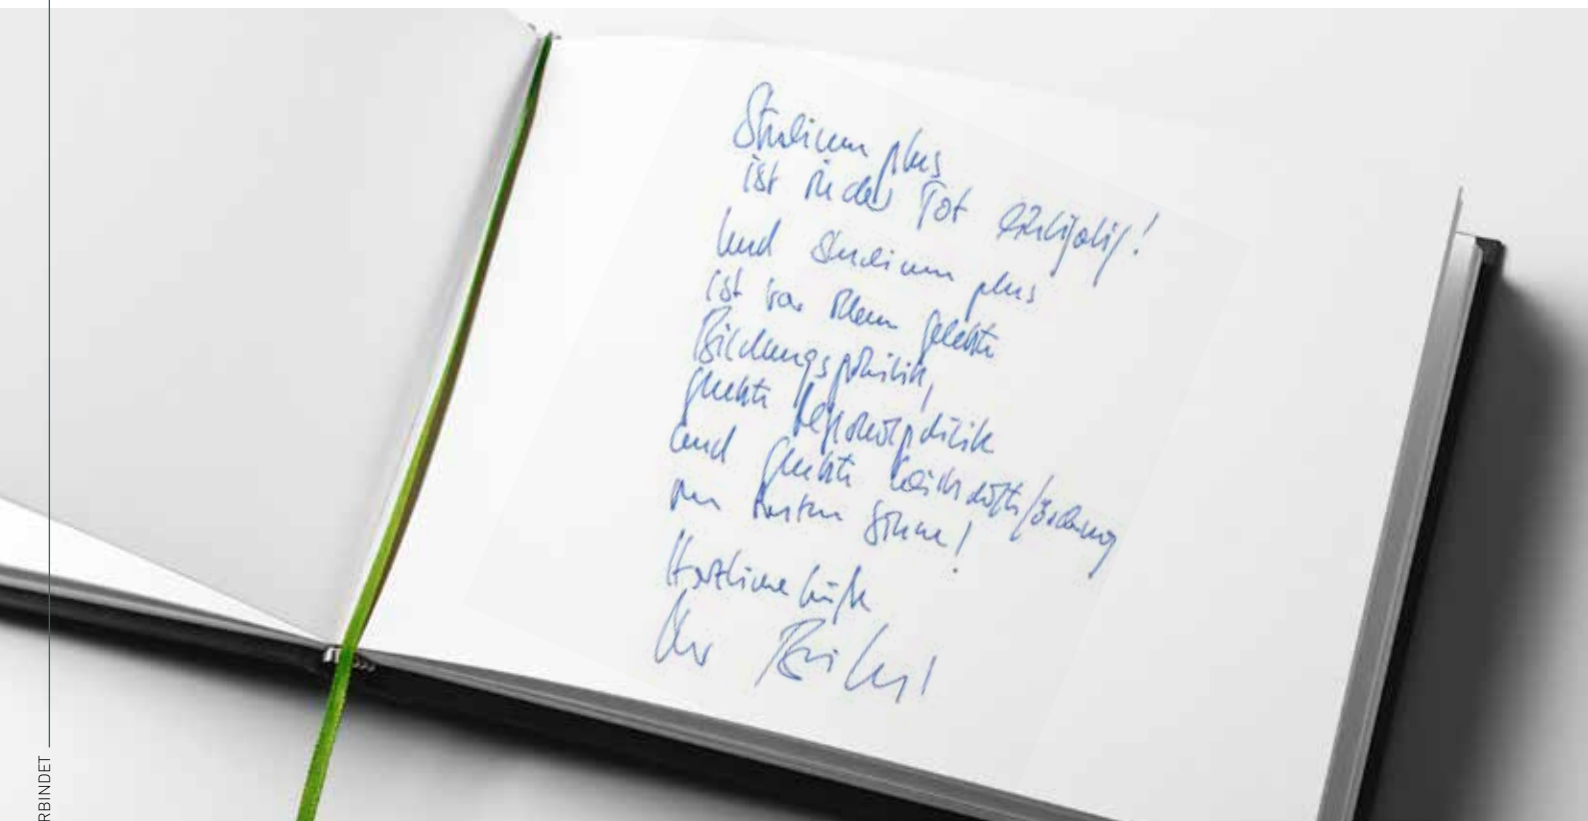 Studium plus
ist in der Tat einzigartig!
Und Studium plus
ist vor allem gelebte
Bildungspolitik,
gelebte Regionalpolitik
und gelebte Wirtschaftsförderung
im besten Sinne!
Herzliche Grüße
Ihr
RBINDET